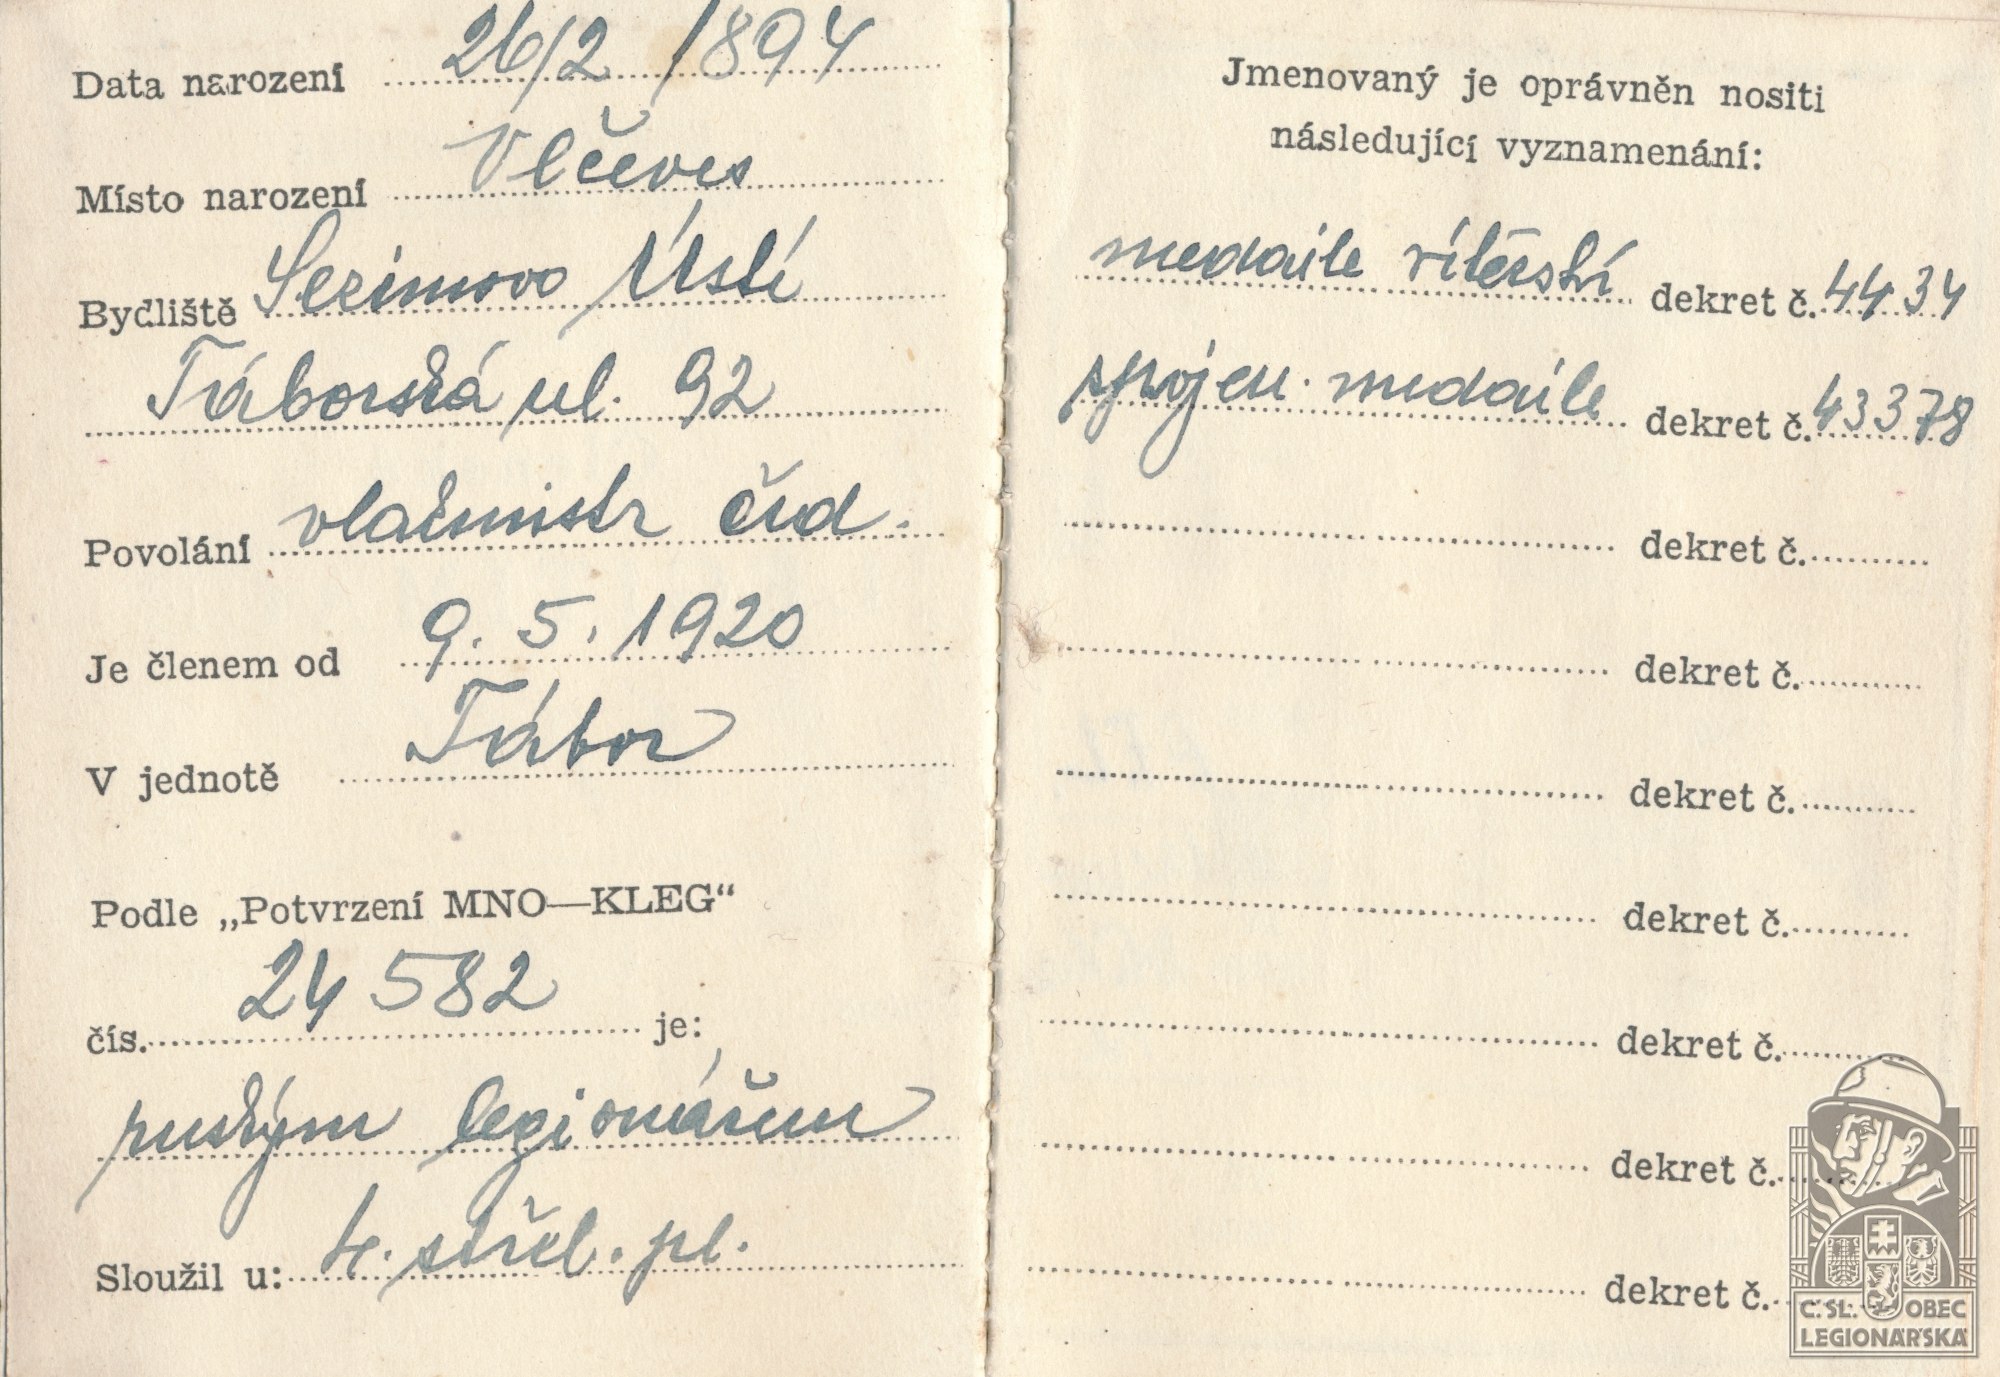 Data narození 26/2 1894
Místo narození Vlčeves
Bydliště Sezimovo Ústí
Táborská ul. 92
Povolání vlakmistr čsd.
Je členem od 9. 5. 1920
V jednotě Tábor
Podle „Potvrzení MNO—KLEG“
čís. 24582 je:
ruským legionářem
Sloužil u: 4. střel. pl.
Jmenovaný je oprávněn nositi
následující vyznamenání:
medaile vítězství dekret č. 4434
spojen. medaile dekret č. 43378
dekret č.
dekret č.
dekret č.
dekret č.
dekret č.
dekret č.
dekret č.
Č. SL. OBEC
LEGIONÁŘSKÁ